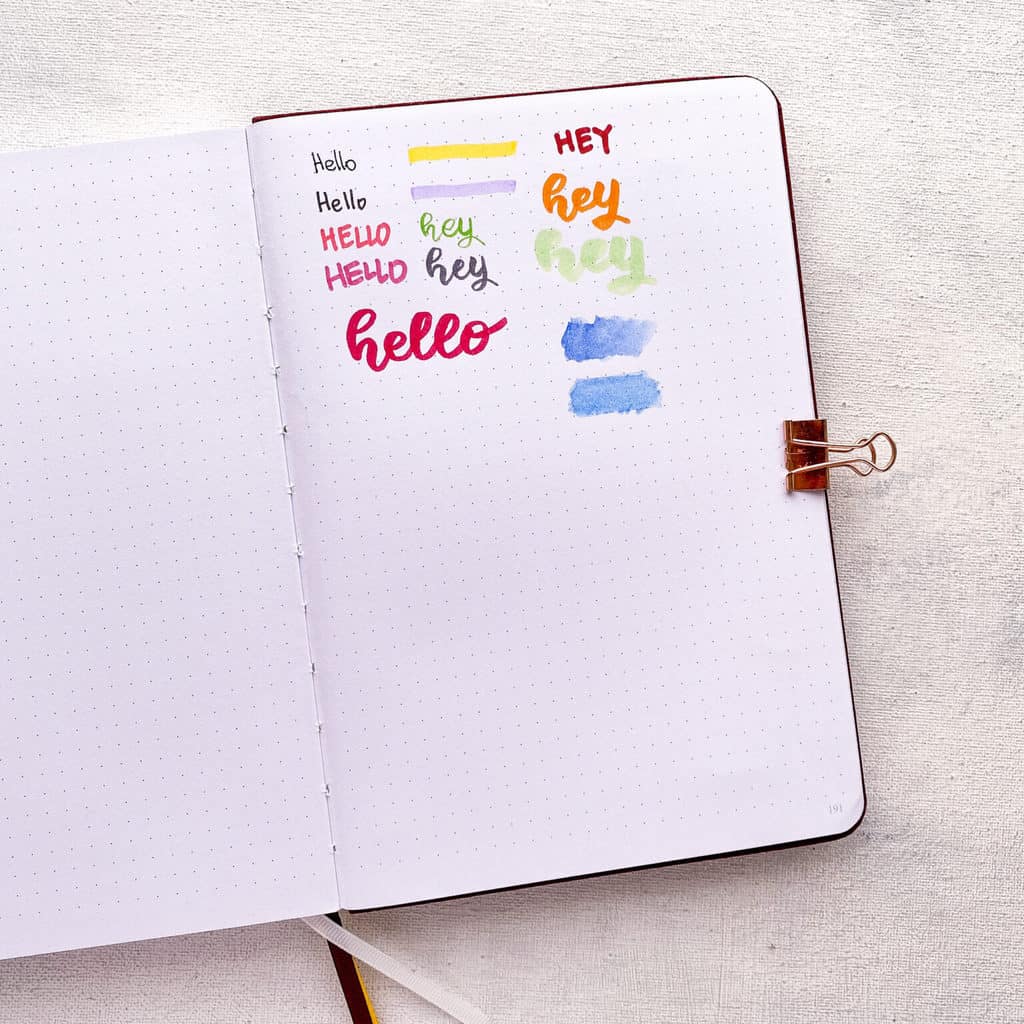 Hello
Hello
HELLO
HELLO
hello
hey
hey
HEY
hey
hey
191